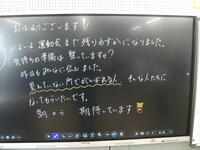 おはようございます！
いよいよ運動会まで残りわずかになりました。
気持ちの準備は整っていますか？
昨日もみんなに伝えました。
見えない所でがんばれる人、そんな人たちに
なってもらいたいです。
期待しています